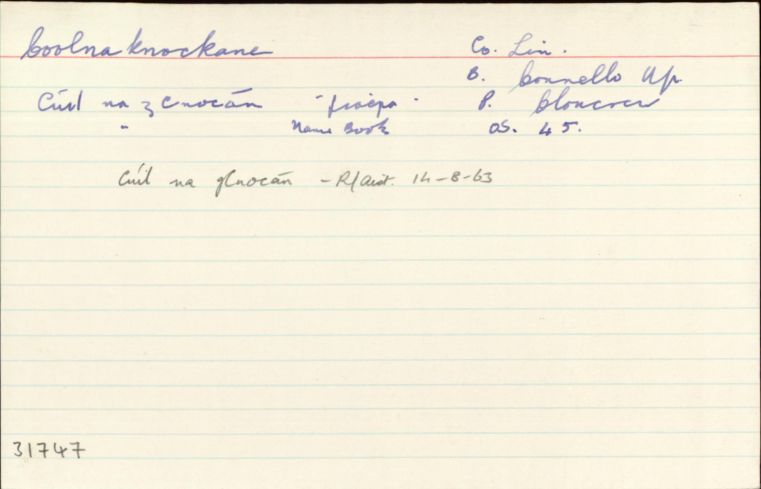 Coolnaknockane Co. Lim.
B. Connello Up.
Cúil na gCnocán P. Cloncrew
" Name Book OS. 45.
Cúil na gCnocán - R/Áit. 14-8-63
31747